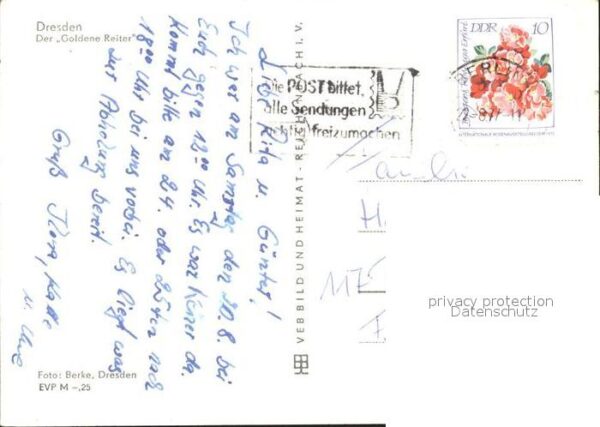 Dresden
Der „Goldene Reiter"
Liebe Rita u. Günter!
Ich war am Samstag den 20.8. bei
Euch gegen 12⁰⁰ Uhr. Es war keiner da.
Kommt bitte am 24. oder 25ten nach
18⁰⁰ Uhr bei uns vorbei. Es liegt was
zur Abholung bereit.
Gruß
u. Uwe
Foto: Berke, Dresden
EVP M –,25
VEB BILD UND HEIMAT · REICHENBACH I. V.
Die POST bittet,
alle Sendungen
richtig freizumachen
BERLIN
DDR 10
Famili
H
1175
privacy protection
Datenschutz